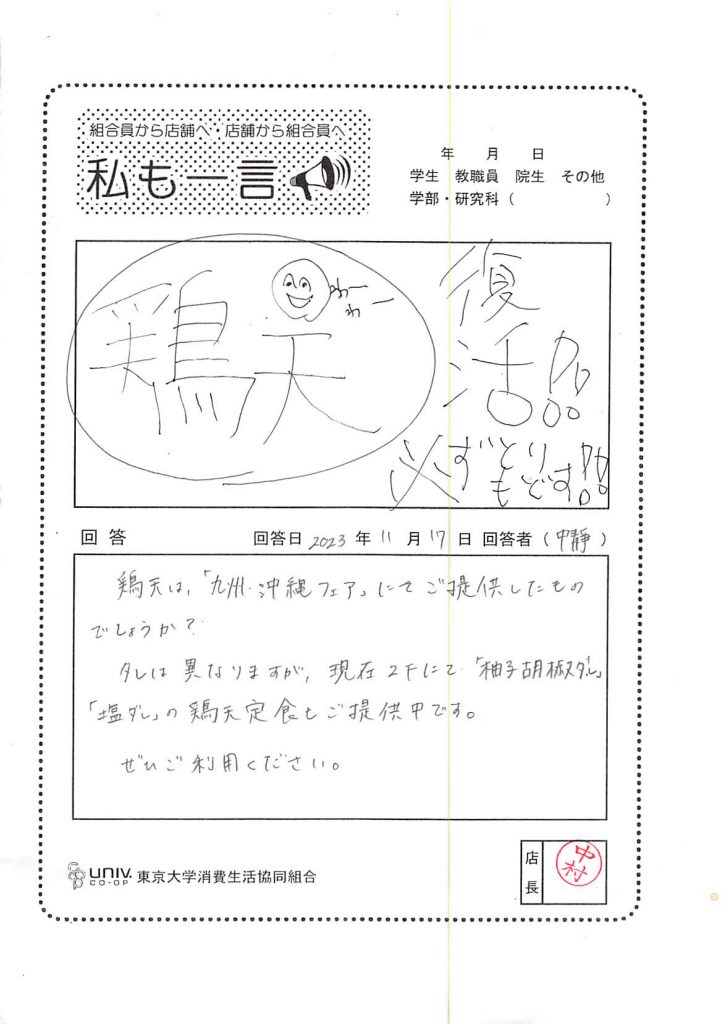 組合員から店舗へ・店舗から組合員へ
私も一言
年 月 日
学生 教職員 院生 その他
学部・研究科（ ）
鶏天
わー
わー
復活!!
必ずとりもどす!!
回答 回答日 2023 年 11 月 17 日 回答者（中静）
鶏天は、「九州・沖縄フェア」にてご提供したもの
でしょうか？
タレは異なりますが、現在2Fにて「柚子胡椒ダレ」
「塩ダレ」の鶏天定食もご提供中です。
ぜひご利用ください。
UNIV. CO-OP 東京大学消費生活協同組合
店長
中村